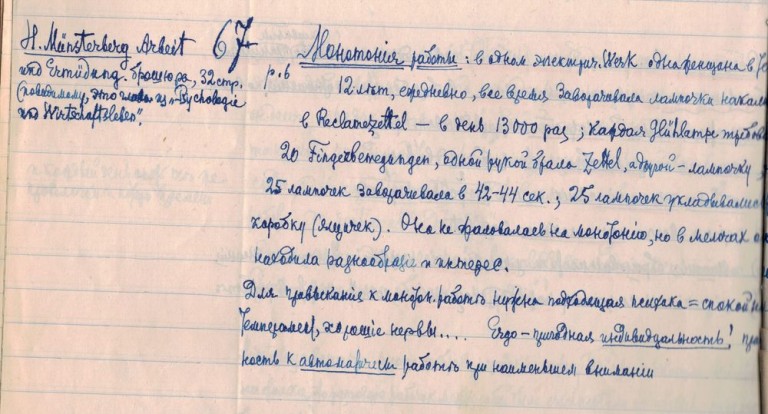 H. Münsterberg Arbeit
und Ermüdung. брошюра, 32 стр.
(повидимому, это глава из "Psychologie
und Wirtschaftsleben".
67
Монотонія работы: в одном электрич. Werk одна женщина в
p. 6
12 лѣт, ежедневно, все время заворачивала лампочки накали
в Reclamezettel — в день 13000 раз; каждая Glühlampe требов
20 Fingerbewegungen, одной рукой брала Zettel, другой – лампочку
25 лампочек заворачивала в 42-44 сек.; 25 лампочек укладывались
коробку (ящичек). Она не жаловалась на монотонію, но в мелочах
находила разнообразіе и интерес.
Для привыканія к монотон. работѣ нужна подходящая психика = спокойн
темперамент, хорошіе нервы.... Ergo – природная индивидуальность!
ность к автоматически работѣ при наименьшем вниманіи